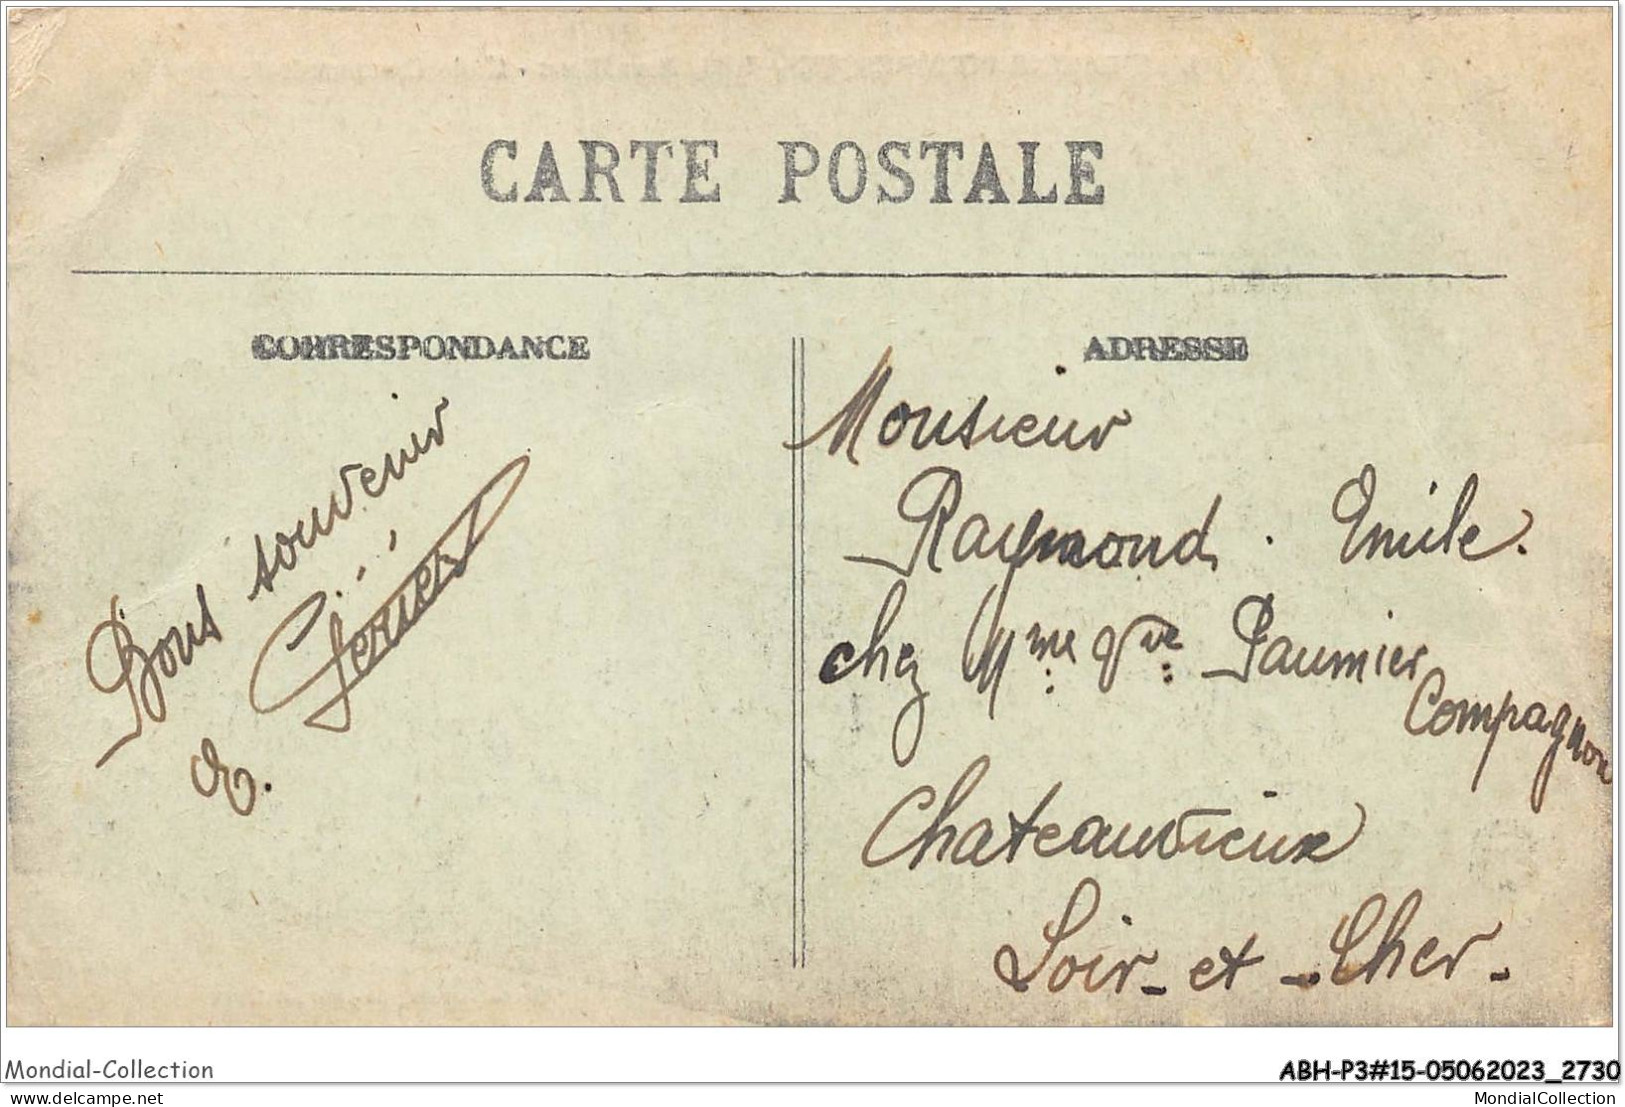 CARTE POSTALE
CORRESPONDANCE
ADRESSE
Bons souvenir
E.
Monsieur
Raymond. Emile.
chez Mme Vve Paumier
Compagnon
Chateauvieux
Loir-et-Cher-
Mondial-Collection
ABH-P3#15-05062023_2730
delcampe.net
MondialCollection